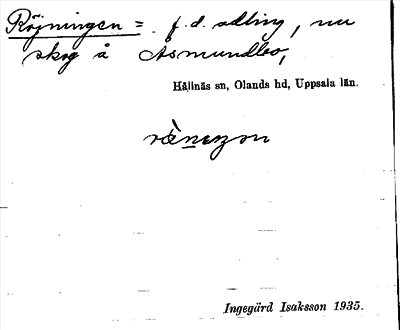 Röjningen = f.d. odling, nu
skog å Asmundbo,
Hållnäs sn, Olands hd, Uppsala län.
Ingegärd Isaksson 1935.